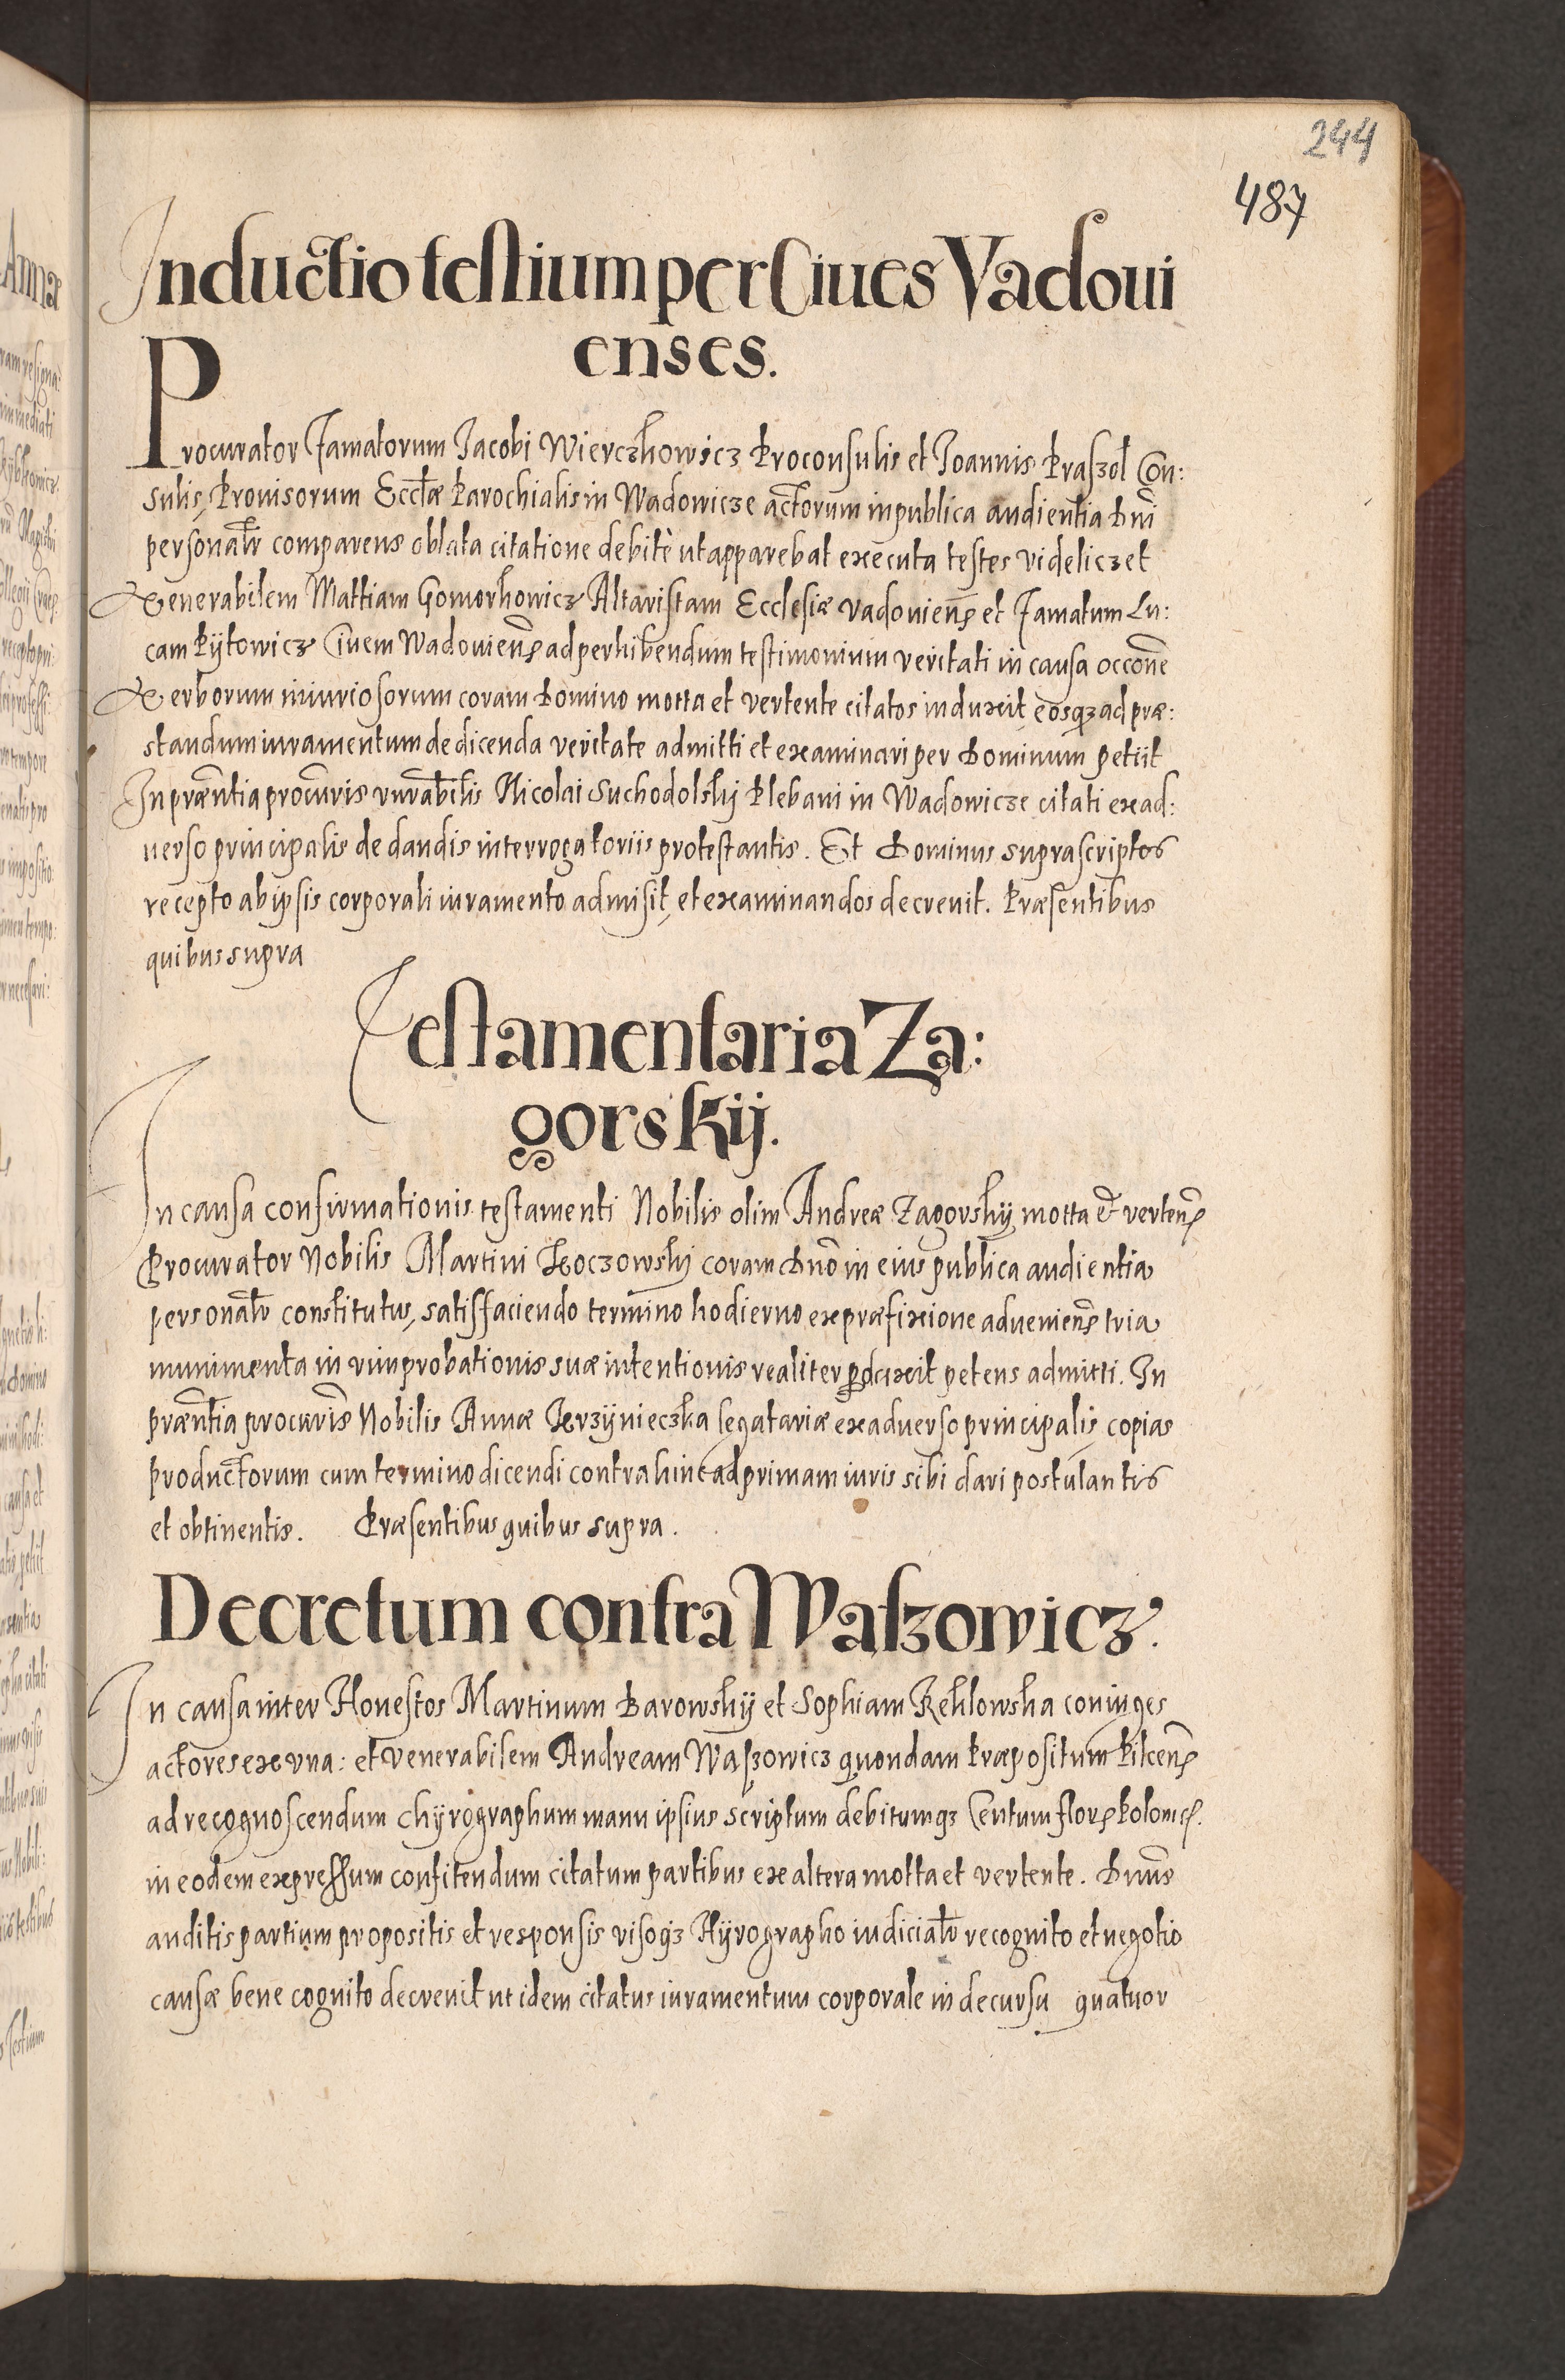 244
487
Inductio testium per Ciues Vadoui
enses.
Procurator Famatorum Jacobi Wierczkowicz Proconsulis et Joannis Praszol Con:
sulis, Prouisorum Eccłæ Parochialis in Wadowicze actorum in publica audientia Dnī
personalr̄ comparens oblata citatione debitè ut apparebat executa testes videliczet
Venerabilem Mattiam Gomorkowicz Altaristam Ecclesiæ vadouieñ et Famatum Lu:
cam Pytowicz Ciuem Wadouieñ ad perhibendum testimonium veritati in causa occōne
Verborum iniuriosorum coram Domino motta et vertente citatos induxit eosqз ad præ:
standum iuramentum de dicenda veritate admitti et examinari per Dominum petiit
In præntia procūris vnrabilis Nicolai Suchodolskij Plebani in Wadowicze citati ex ad:
uerso principalis de dandis interrogatoriis protestantis. Et Dominus suprascriptos
recepto ab ipsis corporali iuramento admisit, et examinandos decreuit. Præsentibus
quibus supra
Testamentaria Za:
gorskij.
In causa confirmationis testamenti Nobilis olim Andreæ Zagorskij motta & verteñ
Procurator Nobilis Martini Koczowskj coram Dnō in eius publica audientia
personalr̄ constitutus, satisfaciendo termino hodierno ex præfixione adueniēn tria
munimenta in vim probationis suæ intentionis realiter pduxit petens admitti. In
præntia procūris Nobilis Annæ Krzÿnieczka legatariæ ex aduerso principalis copias
productorum cum termino dicendi contra hinc ad primam iuris sibi dari postulantis
et obtinentis. Præsentibus quibus supra.
Decretum contra Waszowicz.
In causa inter Honestos Martinum Barowskÿ et Sophiam Reklowska coniuges
actores ex vna: et venerabilem Andream Waszowicz quondam Præpositum Pilceñ
ad recognoscendum chÿrographum manu ipsius scriptum debitumqз Centum flor Polonic.
in eodem expressum confitendum citatum partibus ex altera motta et vertente. Dnūs
auditis partium propositis et responsis visoqз Hÿrographo iudicialr̄ recognito et negotio
causæ bene cognito decreuit ut idem citatus iuramentum corporale in decursu quatuor